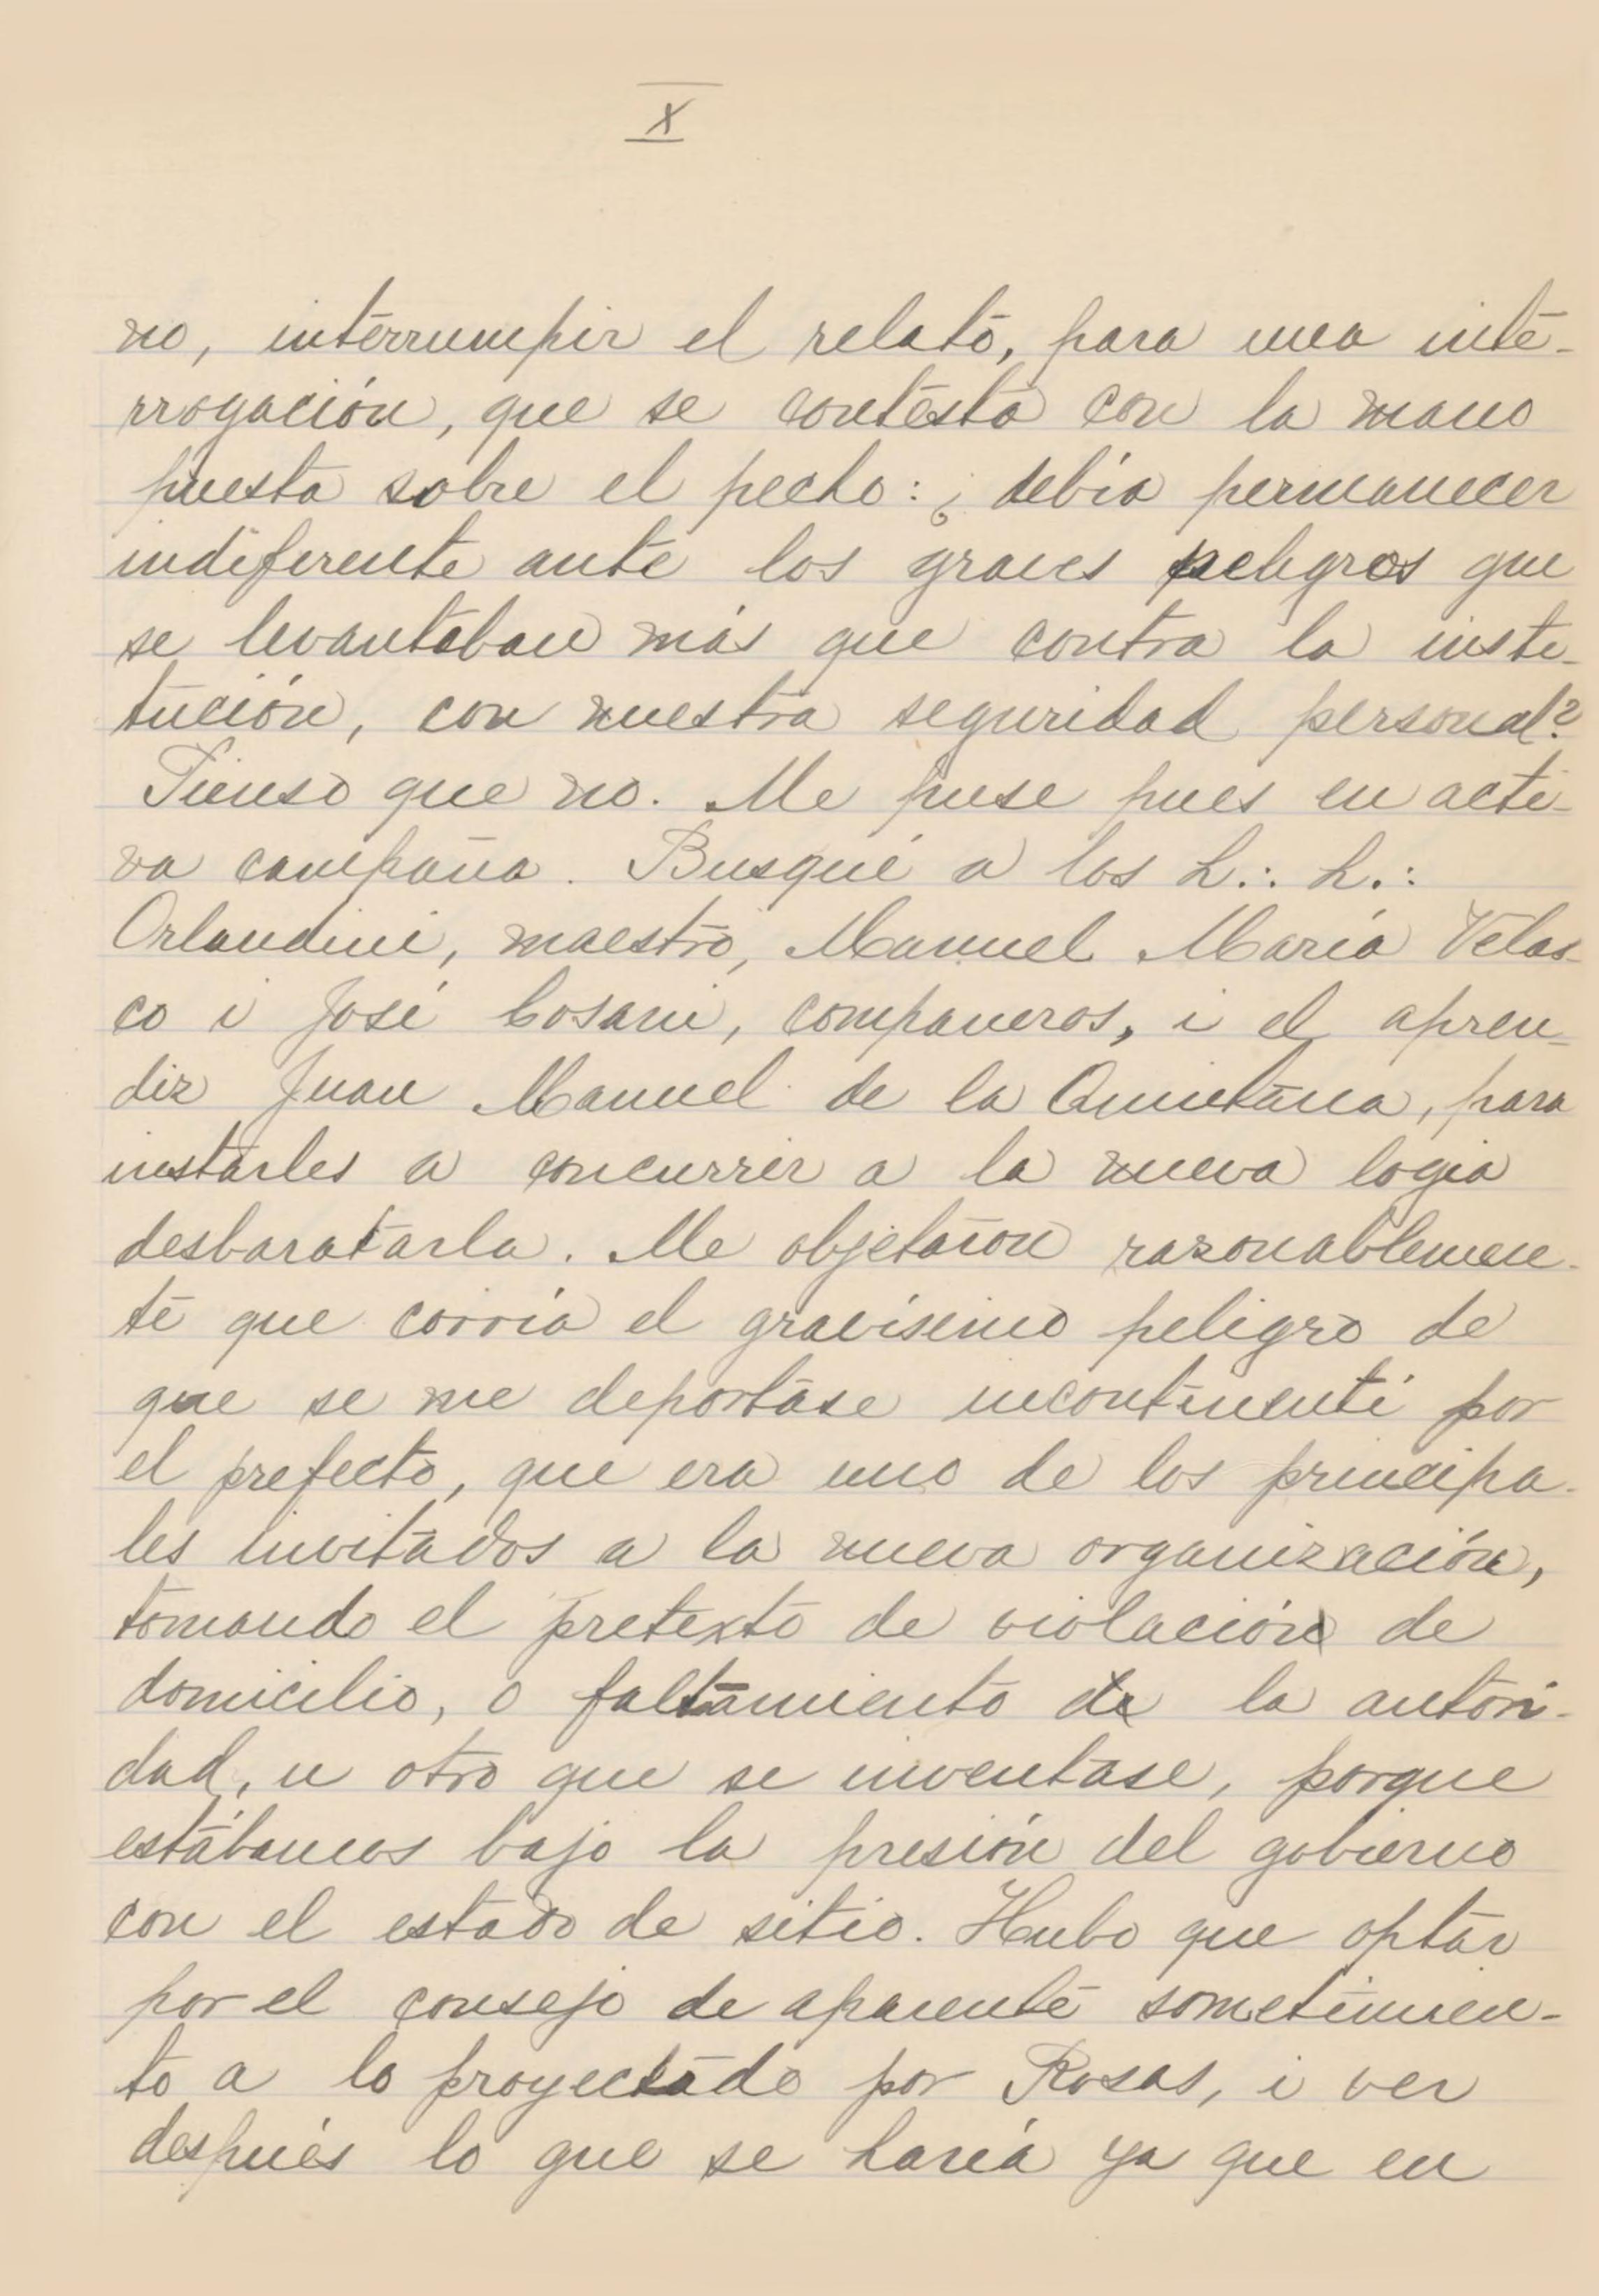 X
no, interrumpir el relato, para una inte-
rrogación, que se contesta con la mano
puesta sobre el pecho: ¿ debía permanecer
indiferente ante los graves peligros que
se levantaban más que contra la insti-
tución, con nuestra seguridad personal?
Pienso que no. Me puse pues en acti-
va campaña. Busqué a los h.: h.:
Orlandini, maestro, Manuel María Velas-
co i José Cosani, companeros, i el apren-
diz Juan Manuel de la Quintana, para
instarles a concurrir a la nueva logia
desbaratarla. Me objetaron razonablemen-
te que corría el gravísimo peligro de
que se me deportase incontinenti por
el prefecto, que era uno de los principa-
les invitados a la nueva organización,
tomando el pretexto de violación de
domicilio, o faltamiento de la autori-
dad, u otro que se inventase, porque
estábamos bajo la presión del gobierno
con el estado de sitio. Hubo que optar
por el consejo de aparente sometimien-
to a lo proyectado por Rosas, i ver
después lo que se haría ya que en